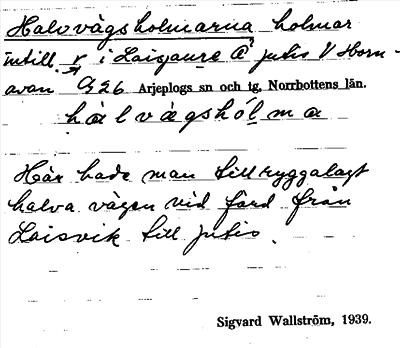 Halvvägsholmarna holmar
intill r i Laisaure @ jutis V Horn-
avan G26 Arjeplogs sn och tg, Norrbottens län.
hàlvägshólma
Här hade man tillryggalagt
halva vägen vid färd från
Laisvik till jutis.
Sigvard Wallström, 1939.